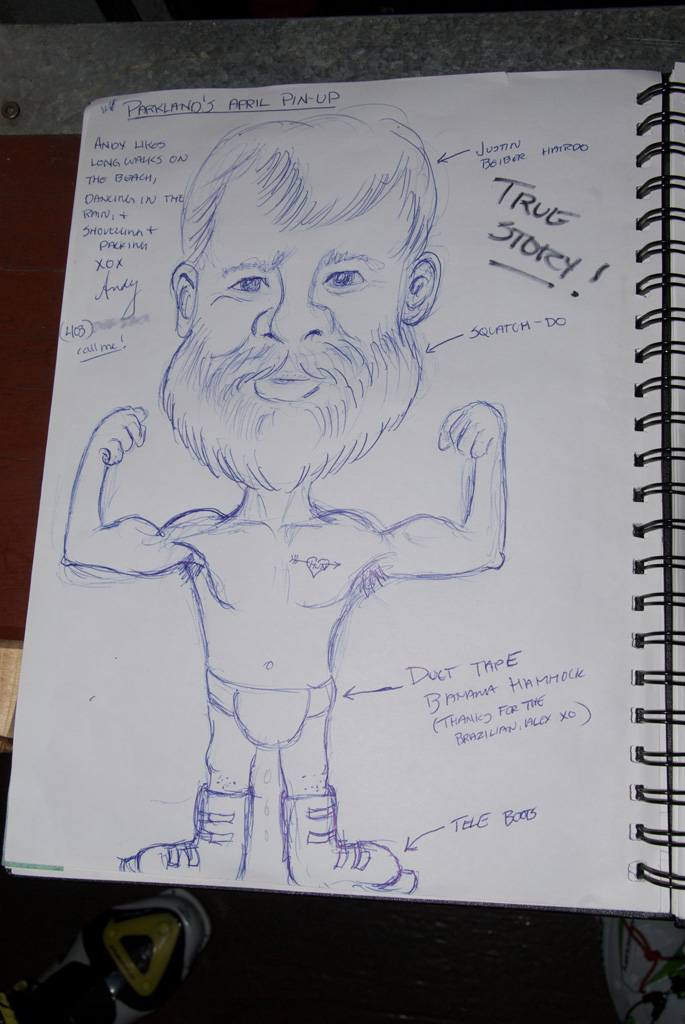 PARKLAND'S APRIL PIN-UP
ANDY LIKES
LONG WALKS ON
THE BEACH,
DANCING IN THE
RAIN, +
SHOVELLING +
PACKING
XOX
Andy
(403)
call me!
JUSTIN
BEIBER HAIRDO
TRUE
STORY!
SQUATCH-DO
DUCT TAPE
BANANA HAMMOCK
(THANKS FOR THE
BRAZILIAN, ALEX XO)
TELE BOOTS